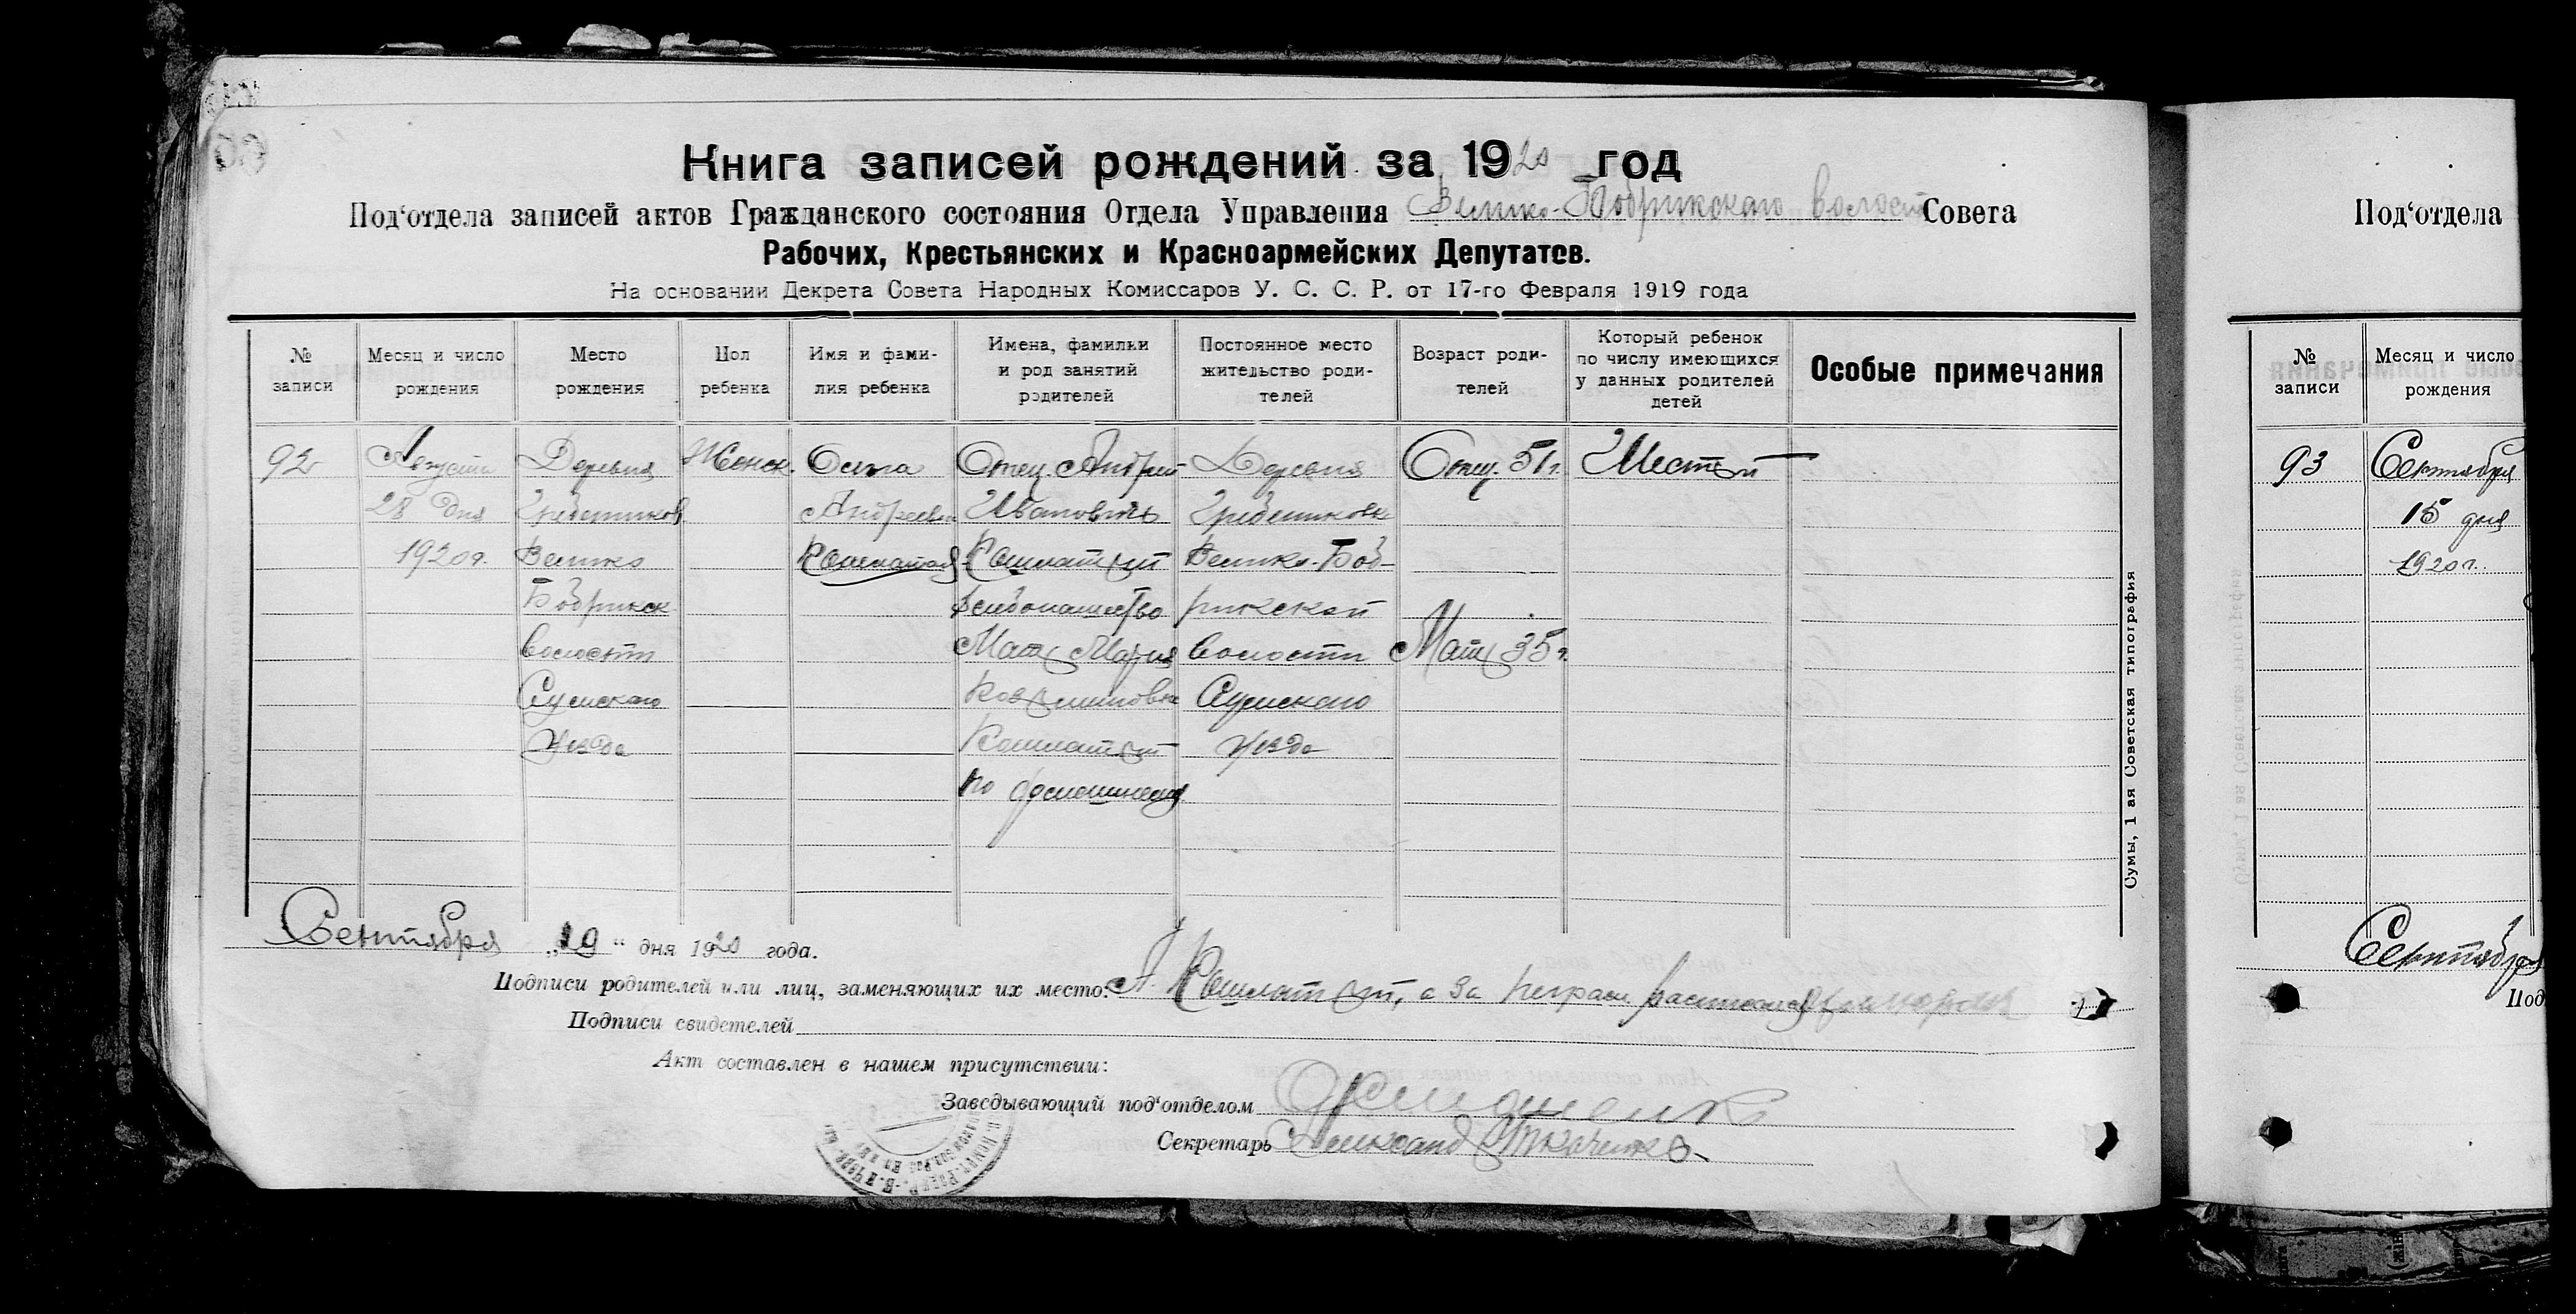 Книга записей рождений за 1920 год
Под‘отдела записей актов Гражданского состояния Отдела Управления Велико-Бобрикского волостн Совета
Рабочих, Крестьянских и Красноармейских Депутатов.
На основании Декрета Совета Народных Комиссаров У. С. С. Р. от 17-го Февраля 1919 года
№ записи
Месяц и число рождения
Место рождения
Пол ребенка
Имя и фами-
лия ребенка
Имена, фамилии
и род занятий
родителей
Постоянное место
жительство роди-
телей
Возраст роди-
телей
Который ребенок
по числу имеющихся
у данных родителей
детей
Особые примечания
92
Августа
28 дня
1920 г.
Деревня
Велико
Бобрикск
волости
Сумского
уезда
Женск.
Андреевна
Косматая
Отец Андрей
Иванович
Косматый
Мать Мария
Косматый
Деревня
Велико-Боб-
рикской
волости
Сумского
уезда
Отцу 51 г.
Мать 35 г.
Шестой
Сентября „19“ дня 1920 года.
Подписи родителей или лиц, заменяющих их место: А. Косматый, а за неграм.
Подписи свидетелей
Акт составлен в нашем присутствии:
Заведывающий под‘отделом
Секретарь Ткаченко
Сумы, 1 ая Советская типография
Под‘отдела
№ записи
Месяц и число рождения
93
Сентября
15 дня
1920 г.
Сентября
Под